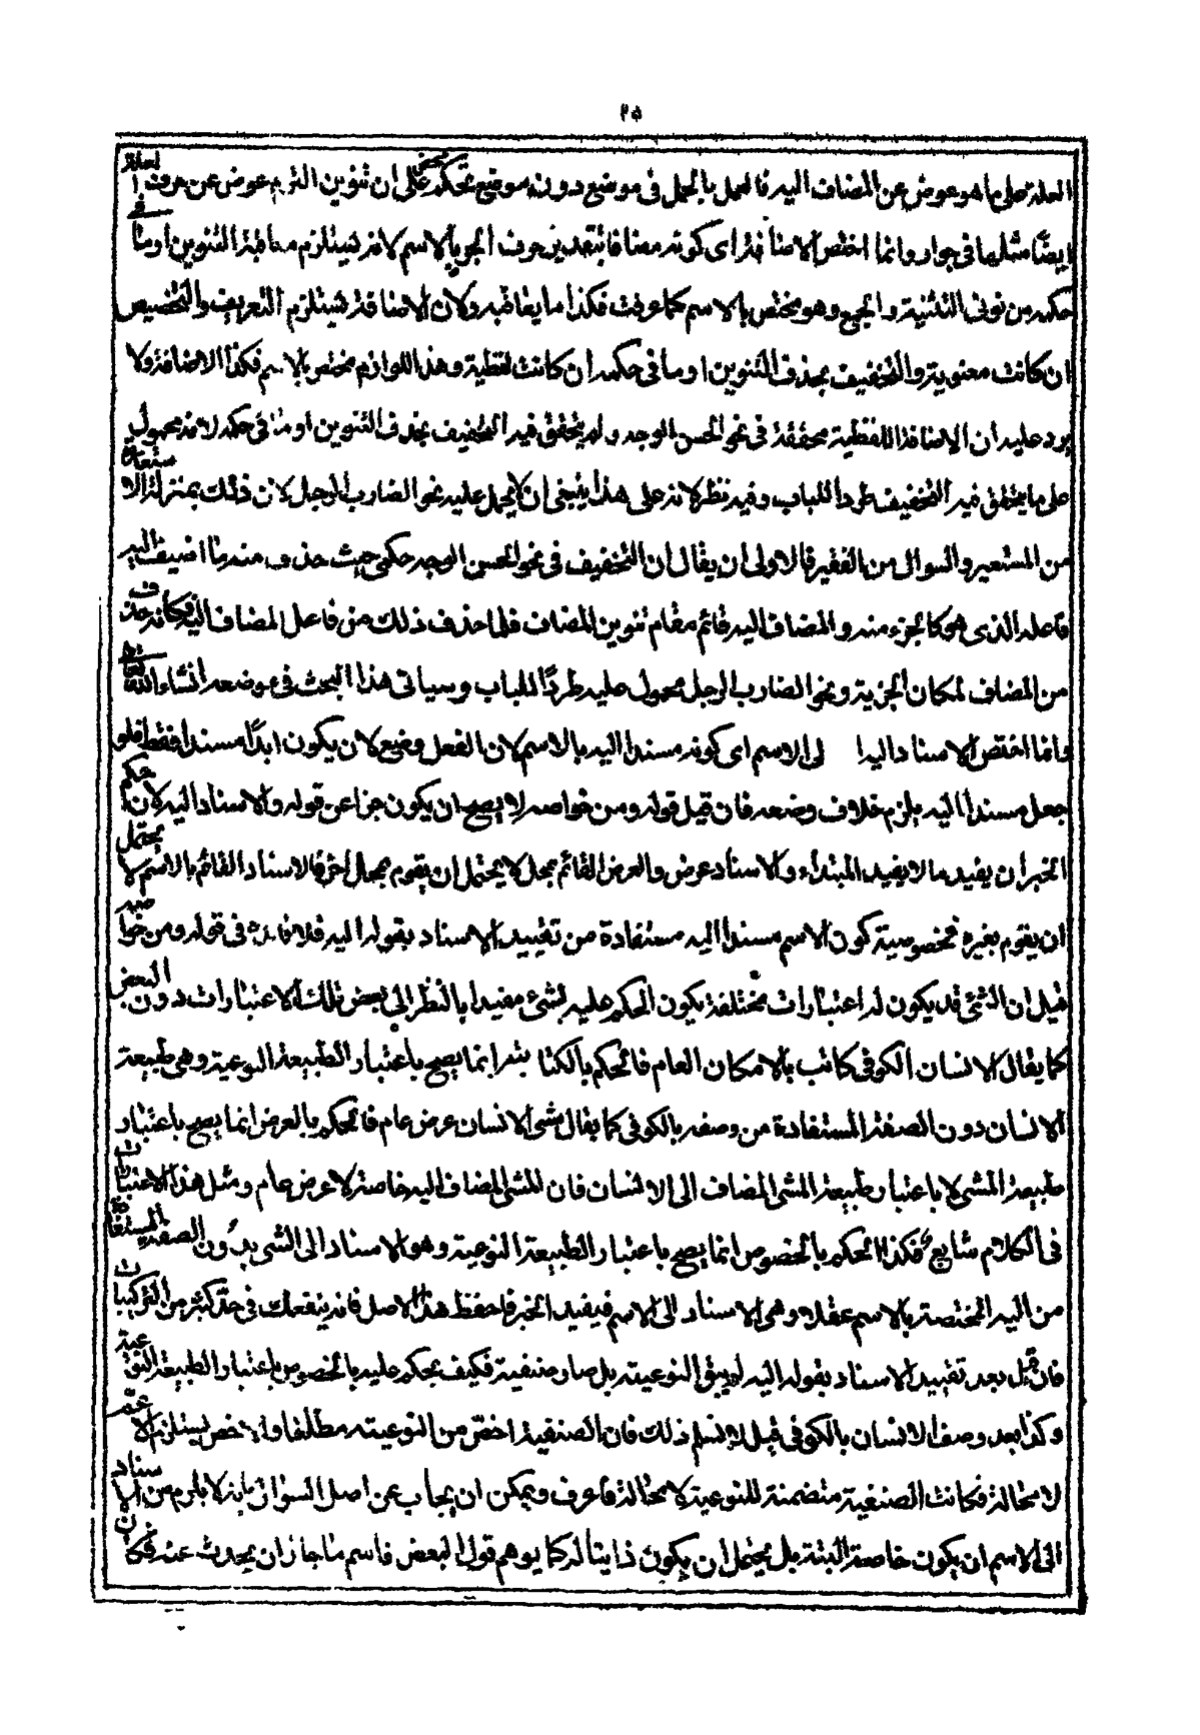 ٢٥
العلة على ما هو عوض عن المضاف اليه فالحمل بالحمل فى موضع دون موضع تحكم محض على ان تنوين الترنم عوض عن حرف الاطلاق
ايضًا مثلها فى جوار وانما اختص الاضافة اى كونه مضافا بتقدير حرف الجر بالاسم لانه يستلزم معاقبة التنوين او ما فى
حكمه من نونى التثنية والجمع وهو مختص بالاسم كما عرفت فكذا ما يعاقبه ولان الاضافة تستلزم التعريف والتخصيص
ان كانت معنوية والتخفيف بحذف التنوين او ما فى حكمه ان كانت لفظية وهذا اللوازم مختص بالاسم فكذا الاضافة ولا
يرد عليه ان الاضافة اللفظية محققة فى نحو الحسن الوجه ولم يتحقق فيه التخفيف بحذف التنوين او ما فى حكمه لانه محمول
على ما يتحقق فيه التخفيف طردا للباب وفيه نظر لانه على هذا ينبغى ان لا يحمل عليه نحو الضارب الرجل لان ذلك بمنزلة الاستعارة
من المستعير والسوال من الفقير فالاولى ان يقال ان التخفيف فى نحو الحسن الوجه حكمى حيث حذف منه ما اضيف اليه
فاعله الذى هو كالجزء منه والمضاف اليه قائم مقام تنوين المضاف فلما حذف ذلك من فاعل المضاف اليه فكانه حذف
من المضاف لمكان الجزئية ونحو الضارب الرجل محمول عليه طردًا للباب وسياتى هذا البحث فى موضعه انشاء الله تعالى
وانما اختص الاسناد اليه اى الى الاسم اى كونه مسندا اليه بالاسم لان الفعل وضع لان يكون ابدًا مسندا فقط فلو
جعل مسندا اليه يلزم خلاف وضعه فان قيل قوله ومن خواصه لا يصح ان يكون خبرا عن قوله والاسناد اليه لان حكم
الخبر ان يفيد ما لا يفيد المبتداء والاسناد عرض والعرض القائم بمحل لا يحتمل ان يقوم بمحل اخر فالاسناد القائم بالاسم لا يحتمل
ان يقوم بغيره فخصوصية كون الاسم مسندا اليه مستفادة من تقييد الاسناد بقوله اليه فلا فائدة فى قوله ومن خواصه
قيل ان الشئ قد يكون له اعتبارات مختلفة يكون الحكم عليه بشئ مفيدا بالنظر الى بعض تلك الاعتبارات دون البعض
كما يقال الانسان الكوفى كاتب بالامكان العام فالحكم بالكتابة انما يصح باعتبار الطبيعة النوعية وهى طبيعة
الانسان دون الصفة المستفادة من وصفه بالكوفى كما يقال مشى الانسان عرض عام فالحكم بالعرض انما يصح باعتبار
طبيعة المشى لا باعتبار طبيعة المشى المضاف الى الانسان فان للمشى المضاف اليه خاصة لا عرض عام ومثل هذا الاعتبارات
فى الكلام شايع فكذا الحكم بالخصوص انما يصح باعتبار الطبيعة النوعية وهو الاسناد الى الشئ بدون الصفة المستفادة
من اليه المختصة بالاسم عقلا وهى الاسناد الى الاسم فيفيد الخبر فاحفظ هذا الاصل فانه ينفعك فى حل كثير من التركيبات
فان قيل بعد تقييد الاسناد بقوله اليه لم يبق النوعية بل صار صنفية فكيف يحكم عليه بالخصوص باعتبار الطبيعة النوعية
وكذا بعد وصف الانسان بالكوفى قيل لا نسلم ذلك فان الصنفية اخص من النوعية مطلقا والاخص يستلزم الاعم
لا محالة فكانت الصنفية متضمنة للنوعية لا محالة فاعرف ويمكن ان يجاب عن اصل السوال بانه لا يلزم من الاسناد
الى الاسم ان يكون خاصة البتة بل يحتمل ان يكون ذاتيا له كما يوهم قول البعض فاسم ما جاز ان يحدث عنه فكان